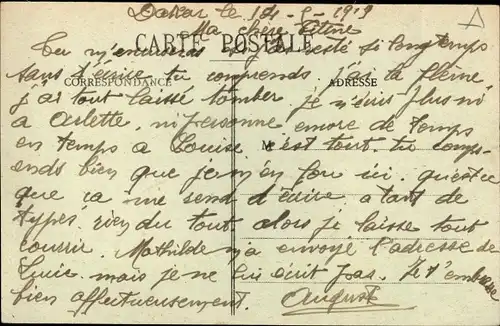 Dakar le 1919
Ma chère Titine
CARTE POSTALE
Tu m'excuseras si j'ai resté si longtemps
sans t'écrire. tu comprends. j'ai la flemme
CORRESPONDANCE
ADRESSE
j'ai tout laissé tomber. je n'écris plus ni
à Arlette, ni personne encore de temps
en temps à Louise. c'est tout tu comp-
ends bien que je m'en fou ici. qu'est ce
que ça me rend d'écrire a tant de
types. rien du tout. alors je laisse tout
courrir. Mathilde m'a envoyé l'adresse de
mais je ne lui écrit pas. Je t'embrasse
bien affectueusement. Auguste